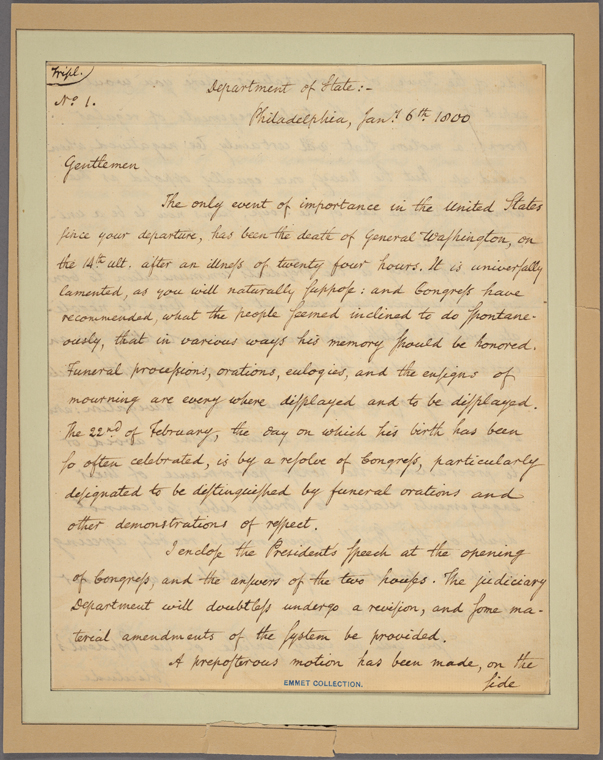 Tripl.
No. 1.
Department of State:-
Philadelphia, Jany. 6th. 1800
Gentlemen
The only event of importance in the United States
since your departure, has been the death of General Washington, on
the 14th. ult. after an illness of twenty four hours. It is universally
lamented, as you will naturally suppose: and Congress have
recommended, what the people seemed inclined to do spontane-
ously, that in various ways his memory should be honored.
Funeral processions, orations, eulogies, and the ensigns of
mourning are every where displayed and to be displayed.
The 22nd of February, the day on which his birth has been
so often celebrated, is by a resolve of Congress, particularly
designated to be distinguished by funeral orations and
other demonstrations of respect.
I enclose the President's speech at the opening
of Congress, and the answers of the two houses. The judiciary
Department will doubtless undergo a revision, and some ma-
terial amendments of the system be provided.
A preposterous motion has been made, on the
side
EMMET COLLECTION.